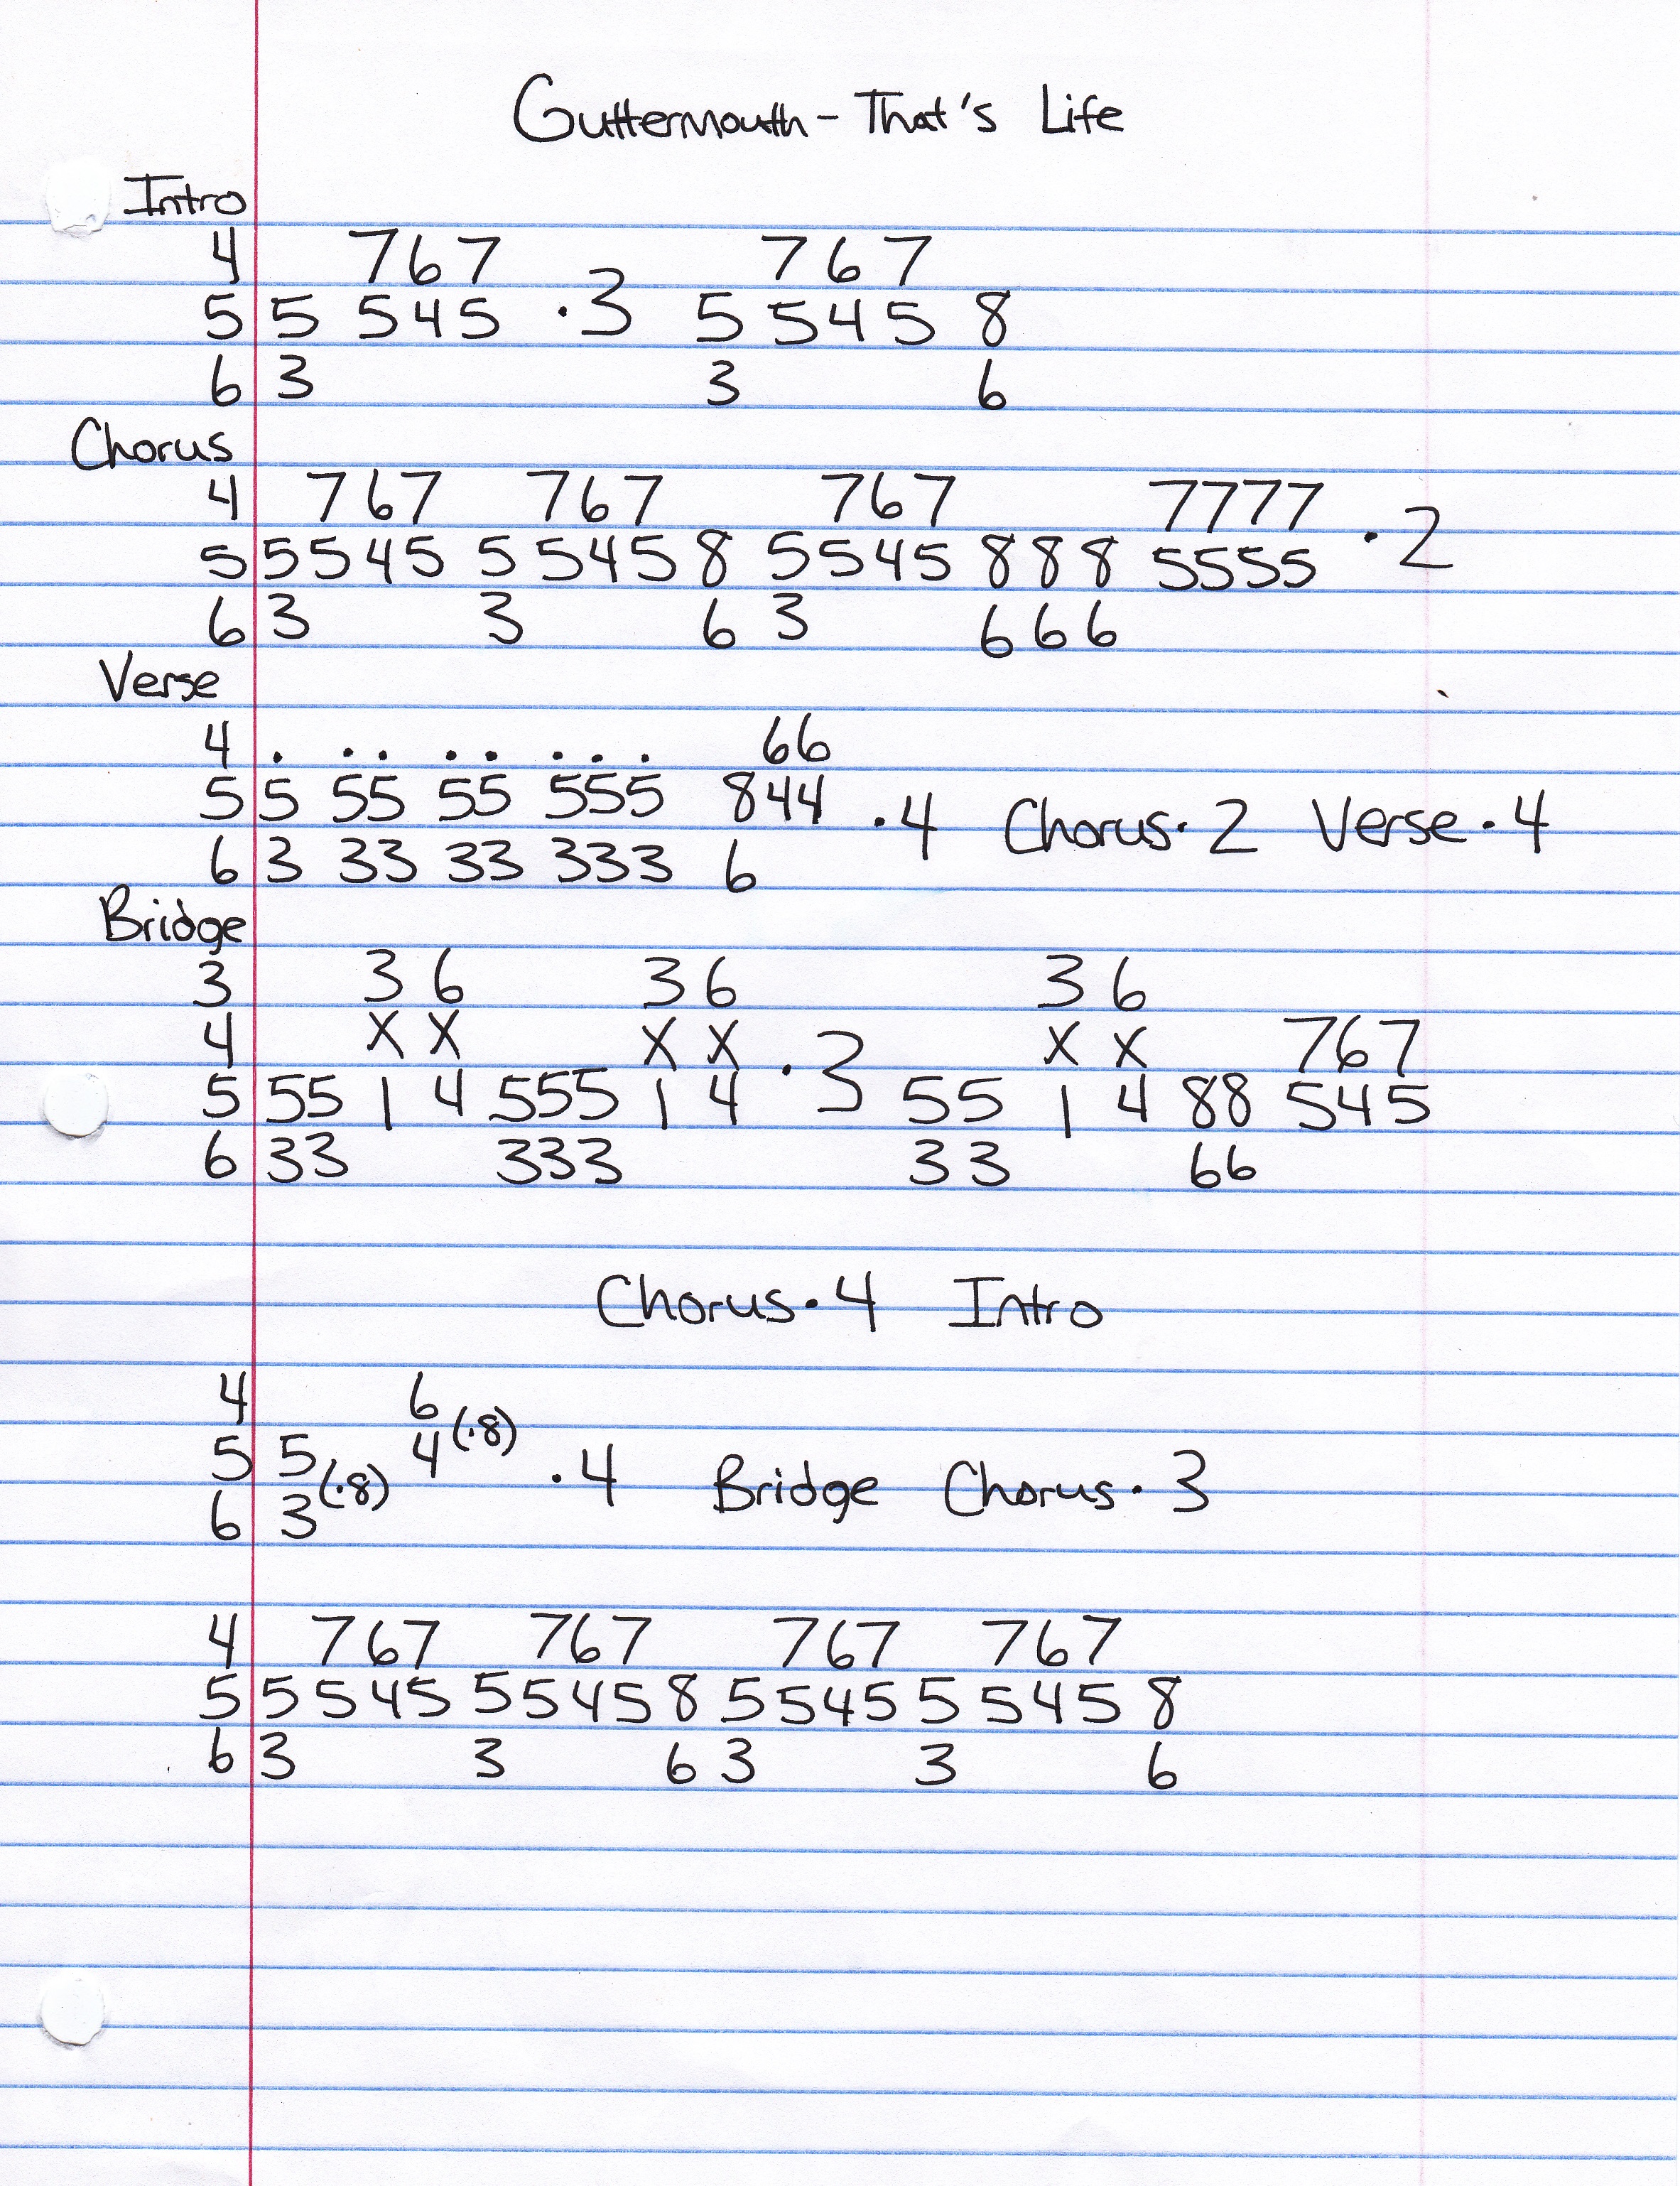 Guttermouth - That's Life
Intro
4 767 767
5 5 545 ·3 5 545 8
6 3 3 6
Chorus
4 767 767 767 7777
5 5545 5545 8 5545 888 5555 ·2
6 3 3 6 3 666
Verse
4 . .. .. ... 66
5 5 55 55 555 844 ·4 Chorus·2 Verse·4
6 3 33 33 333 6
Bridge
3 3 6 3 6 3 6
4 x x x x ·3 x x 767
5 55 1 4 555 1 4 55 1 4 88 545
6 33 333 33 66
Chorus·4 Intro
4 6
5 5 4 (·8)
6 3 (·8) ·4 Bridge Chorus·3
4 767 767 767 767
5 5545 5545 8 5545 5545 8
6 3 3 6 3 3 6